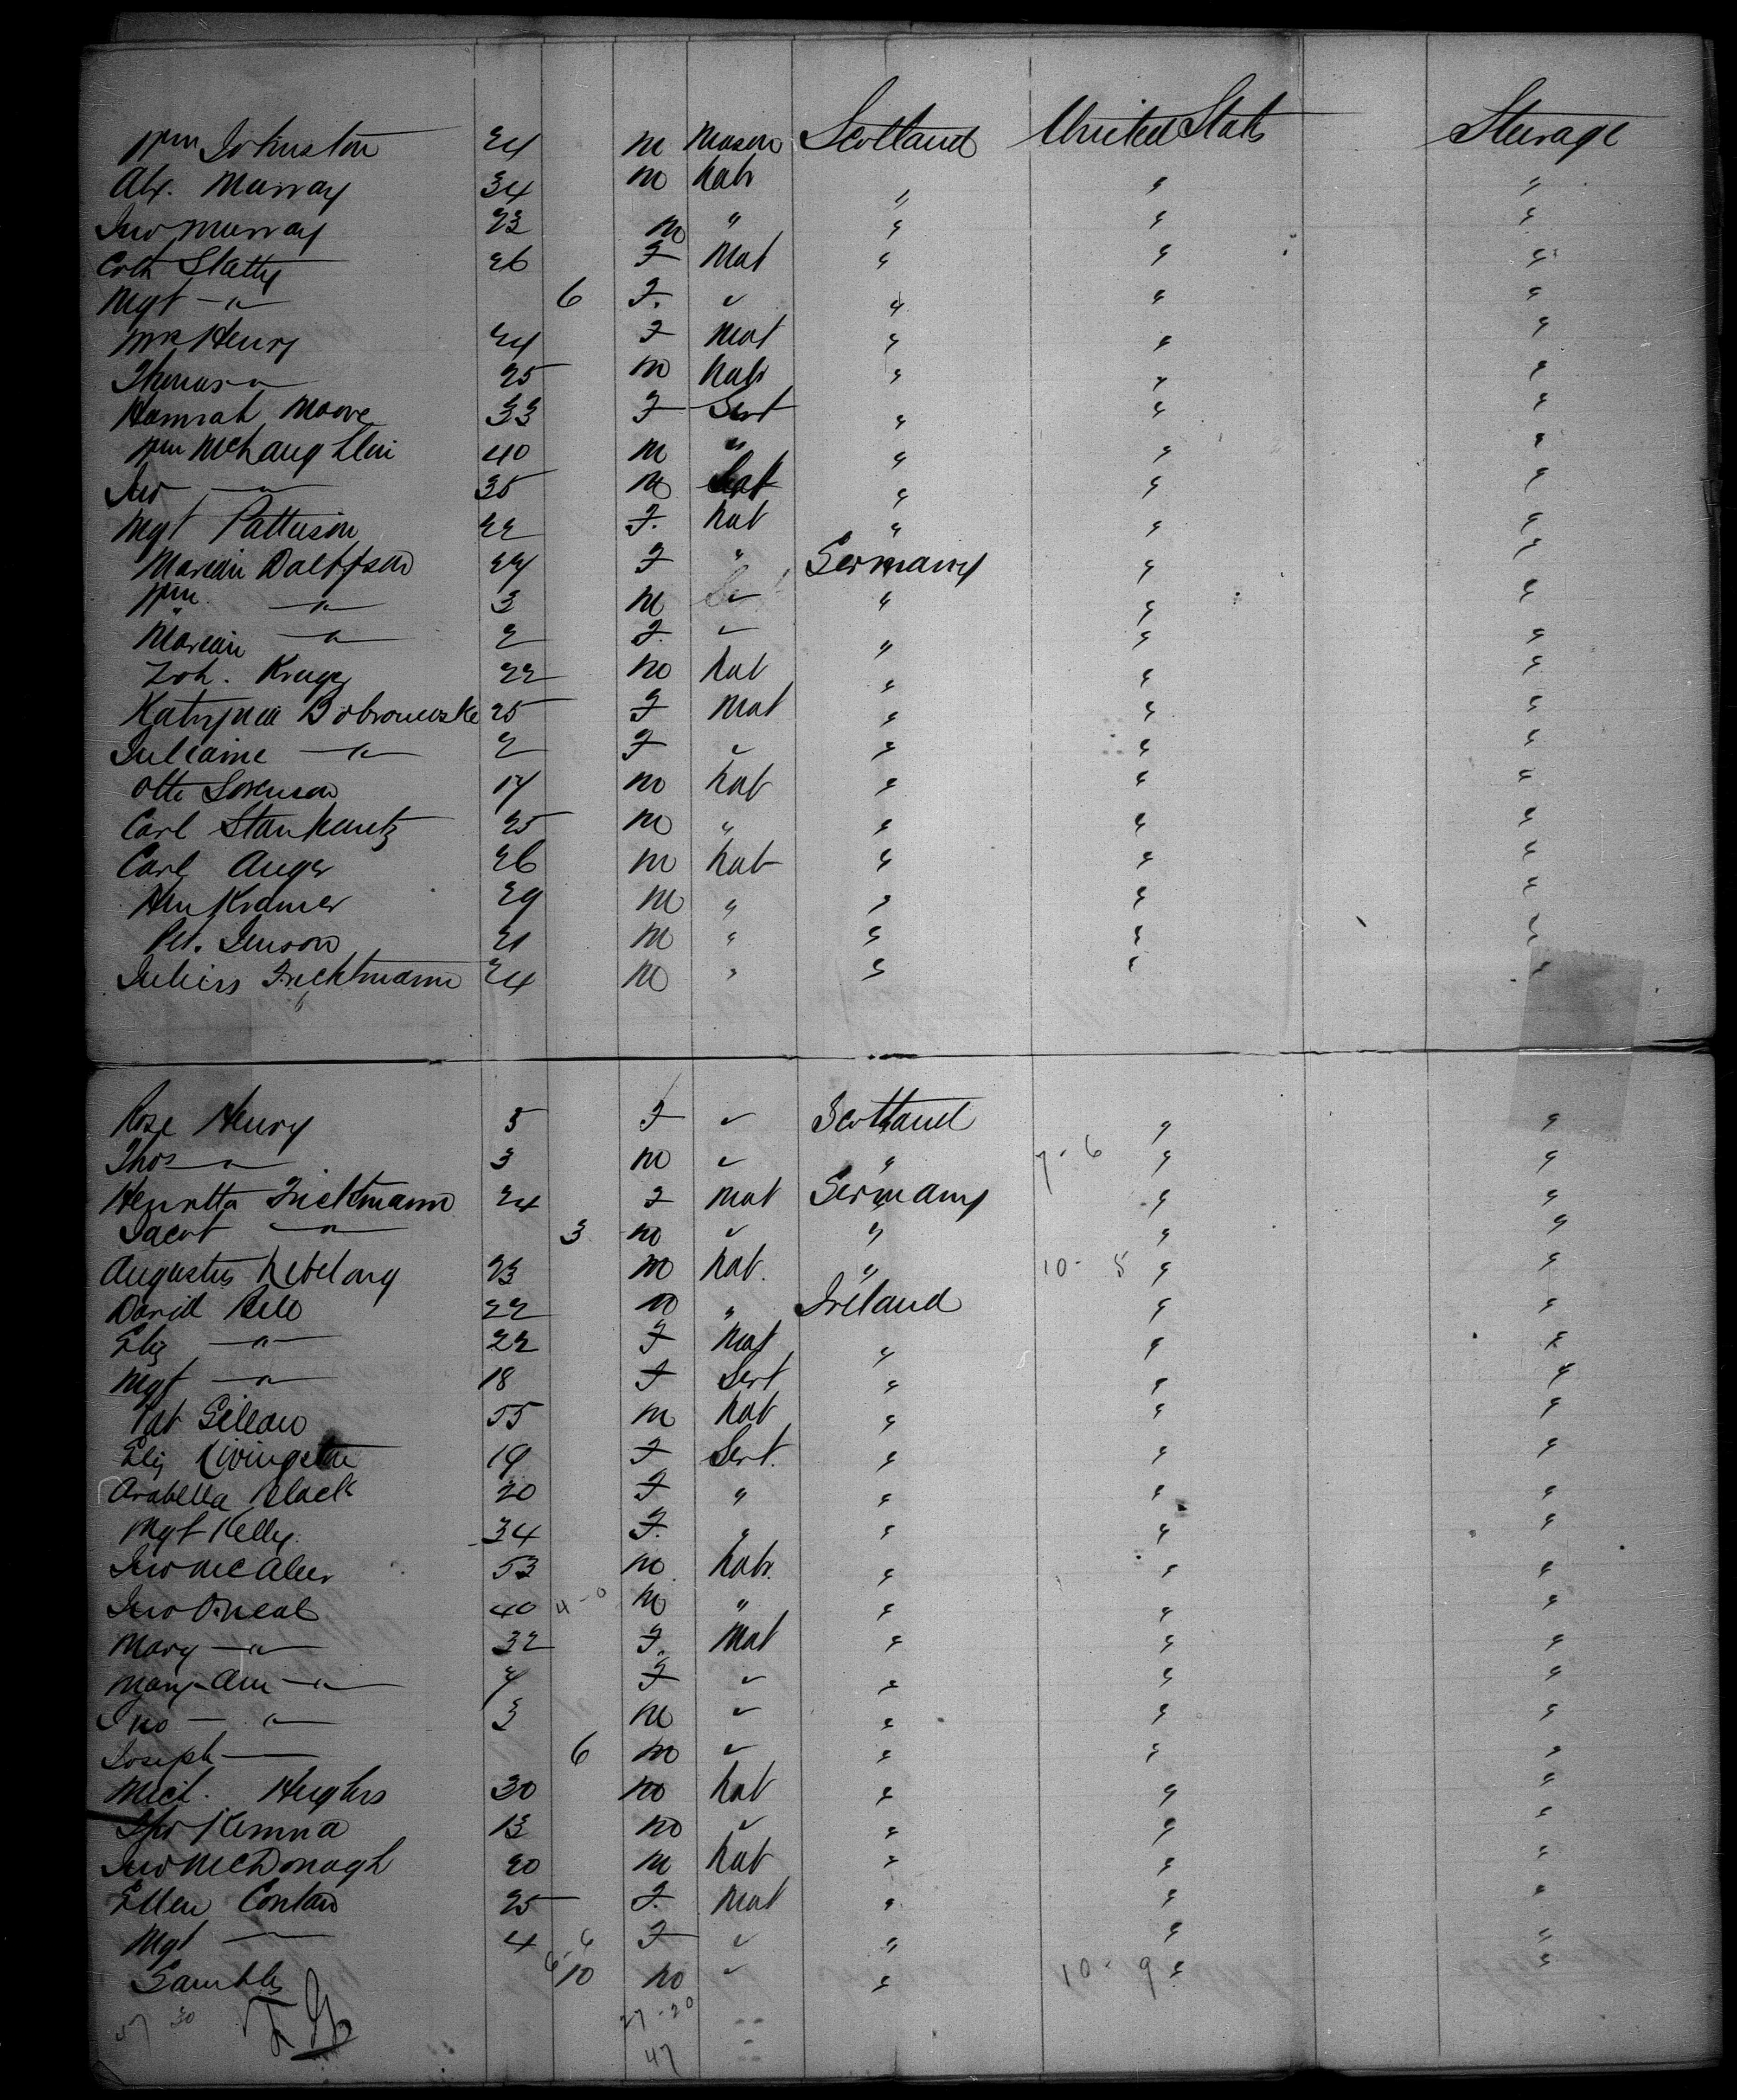 Wm Johnston 24 M Mason Scotland United Stats Steerage
Alx. Murray 34 M Labr " " "
Jno Murray 23 M " " " "
Cath Slatty 26 F Mat " " "
Mgt " 6 F. " " "
Mrs Henry 24 F Mat " " "
Thomas " 25 M Labr " " "
Hannah Moore 33 F Sert " " "
Wm McLaughlin 40 M " " " "
Jno " 35 M " " "
Mgt Patterson 22 F. Lab " " "
24 F " Germany " "
Wm " 3 M " " "
" 2 F. " " "
Joh. Kruger 22 M Lab " " "
Bobrowske 25 F Mat " " "
" 2 F " " "
Otto Sorenson 17 M Lab " " "
Carl 25 M " " " "
Carl Auger 26 M Lab " " "
Hm Kramer 29 M " " " "
Pet. Jenson 21 M " " " "
Julius Frecktmann 24 M " " " "
Rose Henry 5 F Scotland " "
Thos " 3 M " 7-6 " "
Henretta 24 F Mat Germany " "
Jacob " 3 M " " "
Augustus 23 M Lab. " 10-5 " "
David Bell 22 M " Ireland " "
Eliz " 22 F Mat " " "
Mgt " 18 F Sert " " "
Pat Gillan 55 M Lab " " "
Eliz Livingston 19 F Sert. " " "
Arabella Black 20 F " " " "
Mgt Kelly 34 F. " " " "
Jno McAleer 53 M Labr. " " "
Jno O.Neal 40 4-0 M " " " "
Mary " 32 F. Mat " " "
Mary Ann " 7 F " " "
Jno " 3 M " " "
Joseph 6 M " " "
Mich. Hughes 30 M Lab " " "
Kenna 13 M " " "
Jno McDonagh 20 M Lab " " "
Ellen Conlan 25 F. Mat " " "
Mgt 4 F " " "
10 M " 10-9 " "
57 30 27-20
47